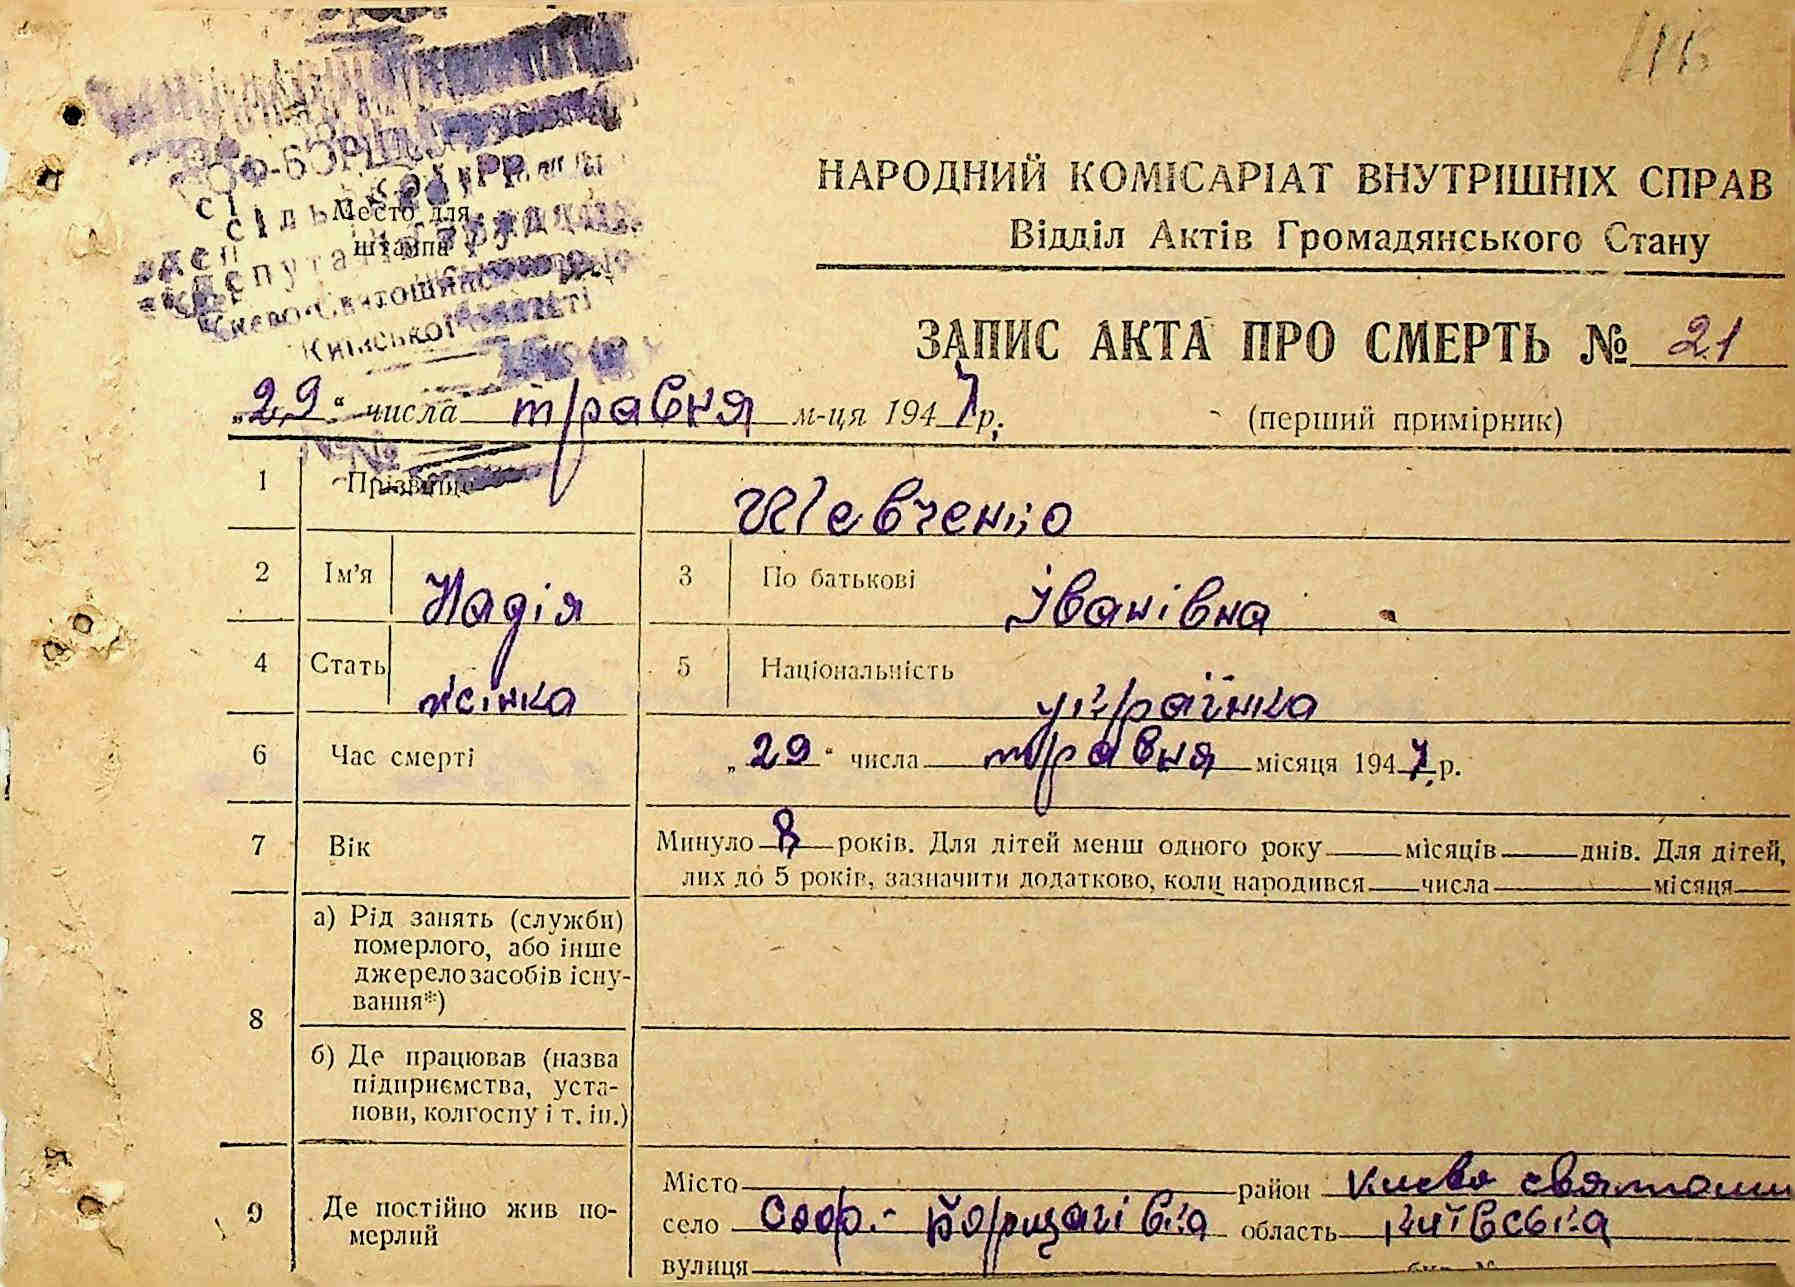 СОФ-БОРЩ
Место для
штампа
Києво-Святошинс
Київської області
НАРОДНИЙ КОМІСАРІАТ ВНУТРІШНІХ СПРАВ
Відділ Актів Громадянського Стану
ЗАПИС АКТА ПРО СМЕРТЬ № 21
„29“ числа травня м-ця 1947 р.
(перший примірник)
1 Прізвище Шевченко
2 Ім'я Надія 3 По батькові Іванівна
4 Стать жінка 5 Національність українка
6 Час смерті „29“ числа травня місяця 1947 р.
7 Вік Минуло 8 років. Для дітей менш одного року місяців днів. Для дітей,
лих до 5 років, зазначити додатково, коли народився числа місяця
8 а) Рід занять (служби)
померлого, або інше
джерело засобів існу-
вання*)
б) Де працював (назва
підприємства, уста-
нови, колгоспу і т. ін.)
9 Де постійно жив по-
мерлий
Місто район Києво Святошин
село Соф.-Борщагівка область Київська
вулиця